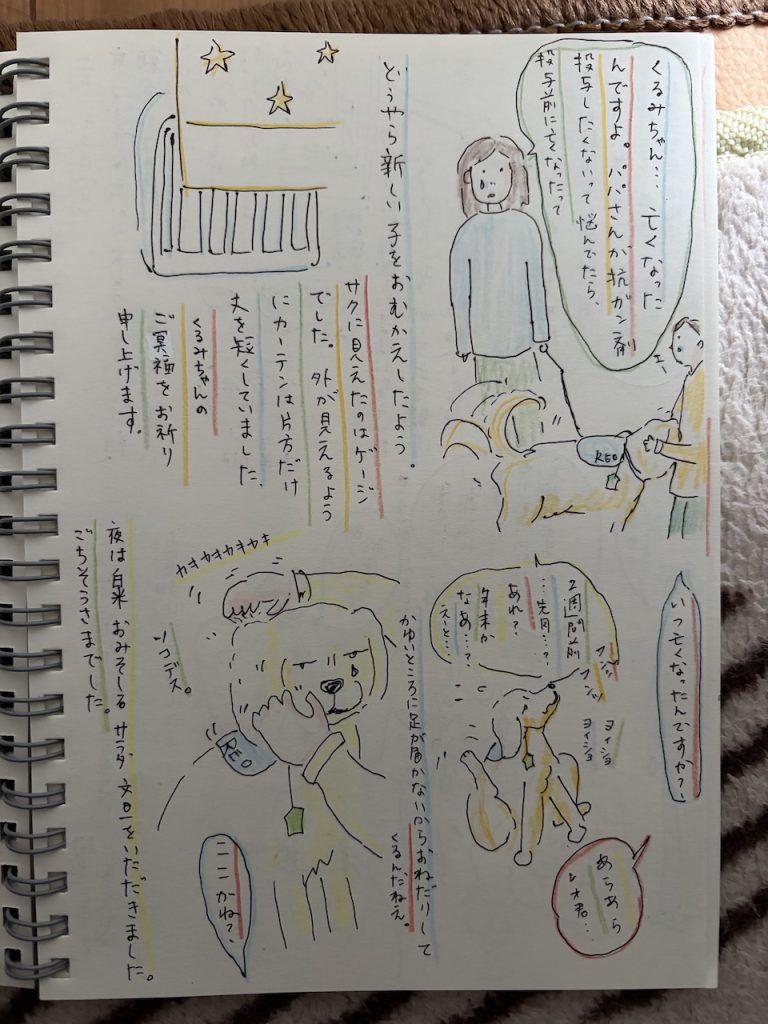 くるみちゃん… 亡くなった
んですよ。パパさんが抗ガン剤
投与したくないって悩んでたら、
投与前に亡くなったって
エッ
REO
どうやら新しい子をおむかえしたよう。
サクに見えたのはゲージ
でした。外が見えるよう
にカーテンは片方だけ
丈を短くしていました
くるみちゃんの
ご冥福をお祈り
申し上げます。
いつ亡くなったんですか?
2週間前
…先月…?
あれ?
年末か
なあ…?
えーと…
フンッ
フンッ
ヨイショ
ヨイショ
あらあら
レオ君…
かゆいところに足が届かないからおねだりして
くるんだねえ。
カキカキカキカキ
ソコデス。
REO
ここかね?
夜は白菜 おみそしる サラダ 文旦をいただきました。
ごちそうさまでした。